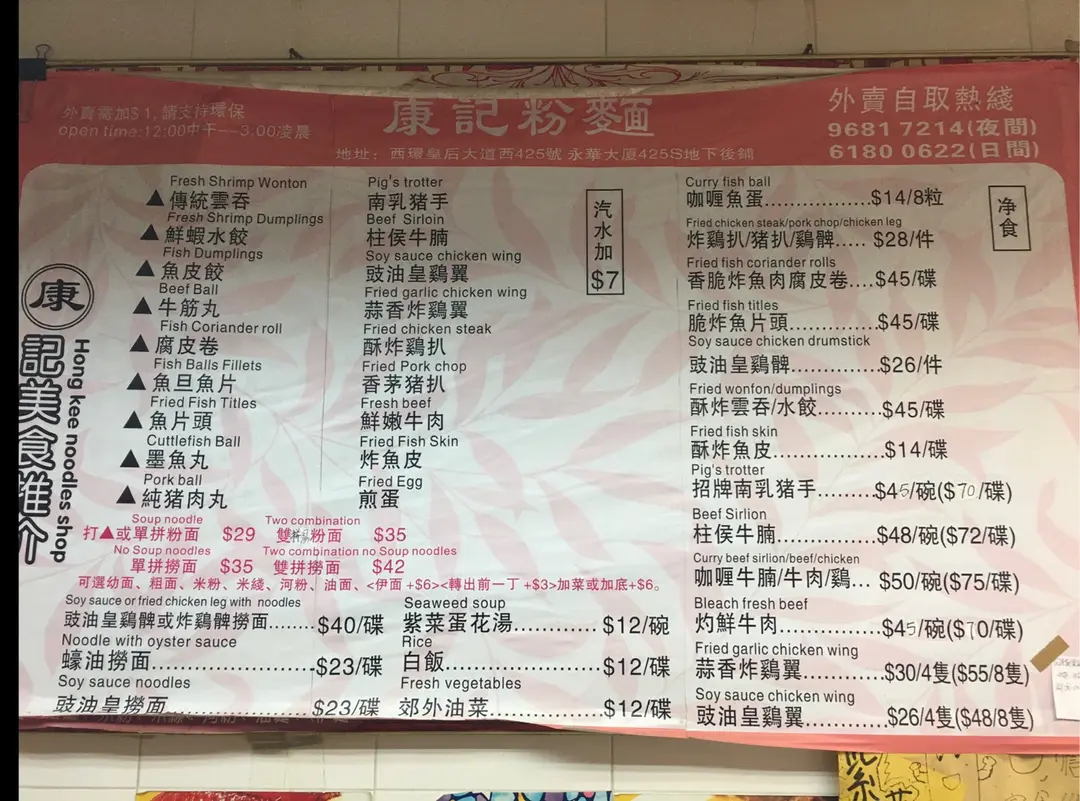 外賣需加$1,請支持環保
open time:12:00中午---3.00凌晨
康記粉麵
地址：西環皇后大道西425號 永華大廈425S地下後鋪
外賣自取熱綫
9681 7214(夜間)
6180 0622(日間)
康
記美食推介
Hong kee noodles shop
Fresh Shrimp Wonton
▲傳統雲吞
Fresh Shrimp Dumplings
▲鮮蝦水餃
Fish Dumplings
▲魚皮餃
Beef Ball
▲牛筋丸
Fish Coriander roll
▲腐皮卷
Fish Balls Fillets
▲魚旦魚片
Fried Fish Titles
▲魚片頭
Cuttlefish Ball
▲墨魚丸
Pork ball
▲純猪肉丸
Pig's trotter
南乳猪手
Beef Sirloin
柱侯牛腩
Soy sauce chicken wing
豉油皇鷄翼
Fried garlic chicken wing
蒜香炸鷄翼
Fried chicken steak
酥炸鷄扒
Fried Pork chop
香茅猪扒
Fresh beef
鮮嫩牛肉
Fried Fish Skin
炸魚皮
Fried Egg
煎蛋
汽水加
$7
Soup noodle
打▲或單拼粉面 $29
Two combination
雙拼粉面 $35
No Soup noodles
單拼撈面 $35
Two combination no Soup noodles
雙拼撈面 $42
可選幼面、粗面、米粉、米綫、河粉、油面、<伊面+$6><轉出前一丁+$3>加菜或加底+$6。
Soy sauce or fried chicken leg with noodles
豉油皇鷄髀或炸鷄髀撈面........$40/碟
Noodle with oyster sauce
蠔油撈面....................$23/碟
Soy sauce noodles
豉油皇撈面..................$23/碟
Seaweed soup
紫菜蛋花湯............$12/碗
Rice
白飯......................$12/碟
Fresh vegetables
郊外油菜...............$12/碟
净食
Curry fish ball
咖喱魚蛋.................$14/8粒
Fried chicken steak/pork chop/chicken leg
炸鷄扒/猪扒/鷄髀..... $28/件
Fried fish coriander rolls
香脆炸魚肉腐皮卷....$45/碟
Fried fish titles
脆炸魚片頭.............$45/碟
Soy sauce chicken drumstick
豉油皇鷄髀.............$26/件
Fried wonfon/dumplings
酥炸雲吞/水餃..........$45/碟
Fried fish skin
酥炸魚皮................$14/碟
Pig's trotter
招牌南乳猪手.........$45/碗($70/碟)
Beef Sirlion
柱侯牛腩................$48/碗($72/碟)
Curry beef sirlion/beef/chicken
咖喱牛腩/牛肉/鷄... $50/碗($75/碟)
Bleach fresh beef
灼鮮牛肉................$45/碗($70/碟)
Fried garlic chicken wing
蒜香炸鷄翼.............$30/4隻($55/8隻)
Soy sauce chicken wing
豉油皇鷄翼............$26/4隻($48/8隻)
紫